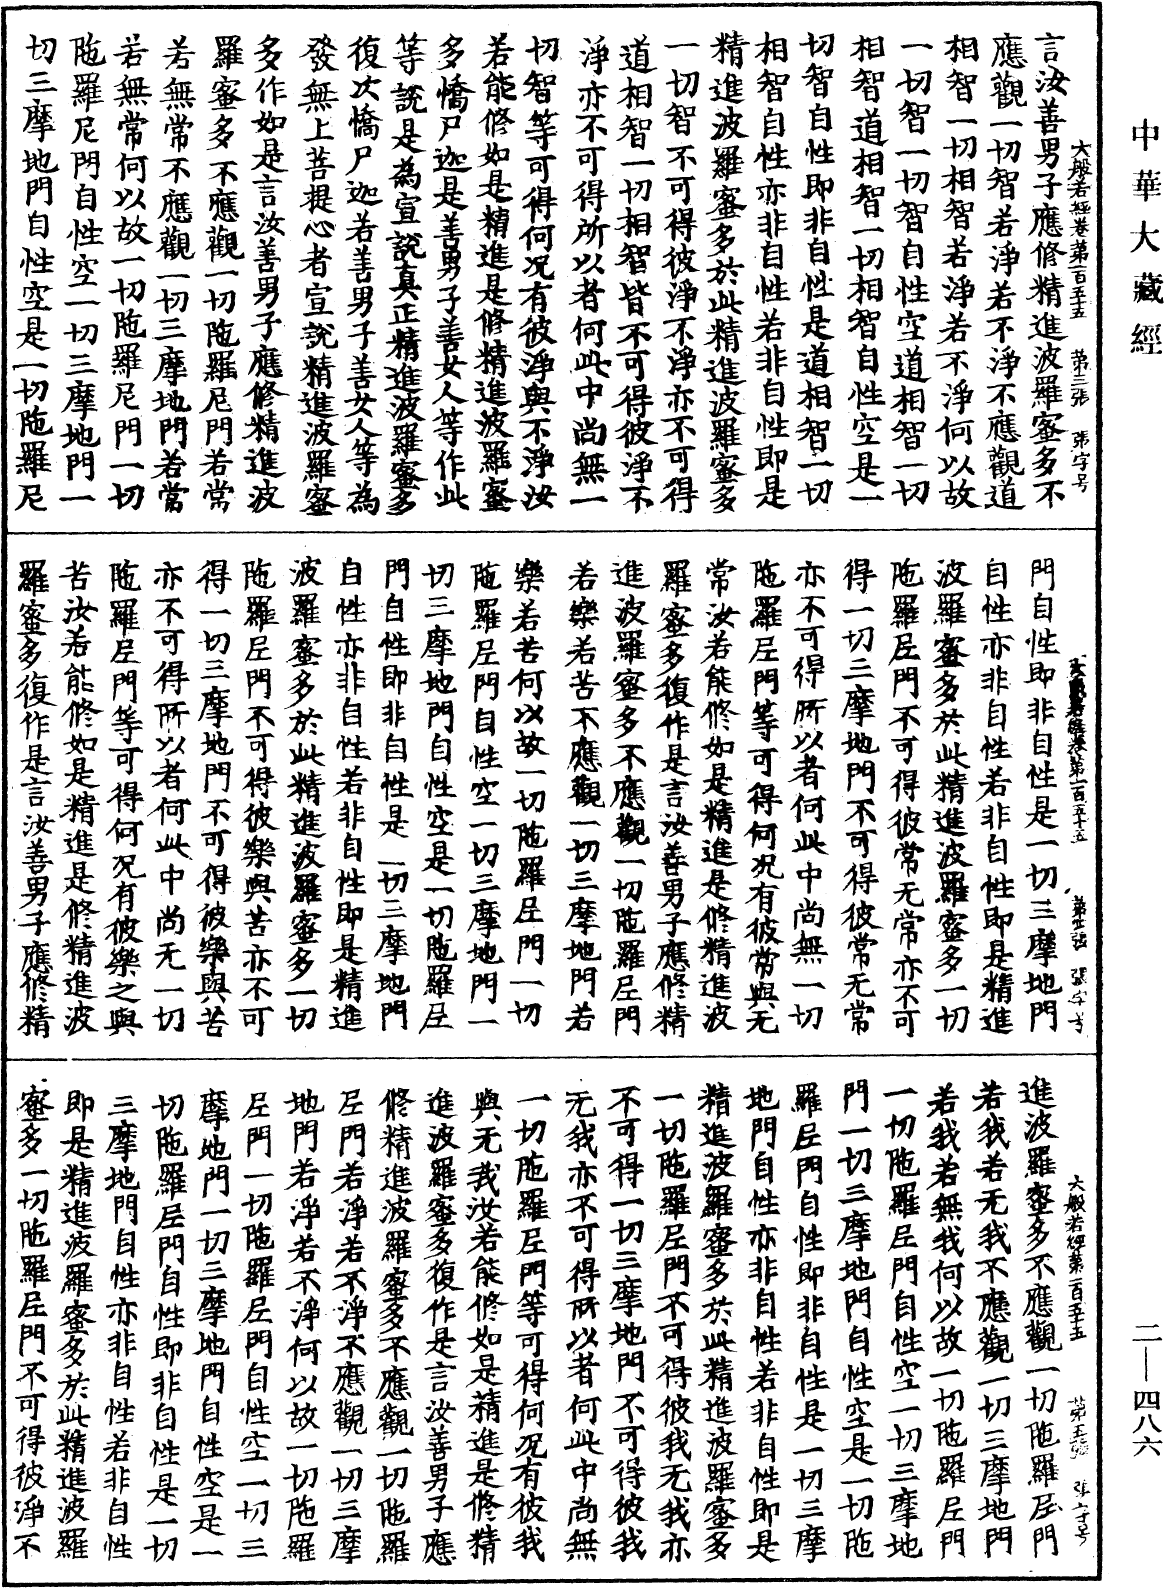 中華大藏經
二—四八六
大般若經卷第一百五十五 第三張 張字号
言汝善男子應修精進波羅蜜多不
應觀一切智若淨若不淨不應觀道
相智一切相智若淨若不淨何以故
一切智一切智自性空道相智一切
相智道相智一切相智自性空是一
切智自性即非自性是道相智一切
相智自性亦非自性若非自性即是
精進波羅蜜多於此精進波羅蜜多
一切智不可得彼淨不淨亦不可得
道相智一切相智皆不可得彼淨不
淨亦不可得所以者何此中尚無一
切智等可得何況有彼淨與不淨汝
若能修如是精進是修精進波羅蜜
多憍尸迦是善男子善女人等作此
等說是為宣說真正精進波羅蜜多
復次憍尸迦若善男子善女人等為
發無上菩提心者宣說精進波羅蜜
多作如是言汝善男子應修精進波
羅蜜多不應觀一切陁羅尼門若常
若無常不應觀一切三摩地門若常
若無常何以故一切陁羅尼門一切
陁羅尼門自性空一切三摩地門一
切三摩地門自性空是一切陁羅尼
門自性即非自性是一切三摩地門
自性亦非自性若非自性即是精進
波羅蜜多於此精進波羅蜜多一切
陁羅尼門不可得彼常无常亦不可
得一切三摩地門不可得彼常无常
亦不可得所以者何此中尚無一切
陁羅尼門等可得何況有彼常與无
常汝若能修如是精進是修精進波
羅蜜多復作是言汝善男子應修精
進波羅蜜多不應觀一切陁羅尼門
若樂若苦不應觀一切三摩地門若
樂若苦何以故一切陁羅尼門一切
陁羅尼門自性空一切三摩地門一
切三摩地門自性空是一切陁羅尼
門自性即非自性是一切三摩地門
自性亦非自性若非自性即是精進
波羅蜜多於此精進波羅蜜多一切
陁羅尼門不可得彼樂與苦亦不可
得一切三摩地門不可得彼樂與苦
亦不可得所以者何此中尚无一切
陁羅尼門等可得何況有彼樂之與
苦汝若能修如是精進是修精進波
羅蜜多復作是言汝善男子應修精
大般若經第一百五十五 第五張 張字号
進波羅蜜多不應觀一切陁羅尼門
若我若无我不應觀一切三摩地門
若我若無我何以故一切陁羅尼門
一切陁羅尼門自性空一切三摩地
門一切三摩地門自性空是一切陁
羅尼門自性即非自性是一切三摩
地門自性亦非自性若非自性即是
精進波羅蜜多於此精進波羅蜜多
一切陁羅尼門不可得彼我无我亦
不可得一切三摩地門不可得彼我
无我亦不可得所以者何此中尚無
一切陁羅尼門等可得何況有彼我
與无我汝若能修如是精進是修精
進波羅蜜多復作是言汝善男子應
修精進波羅蜜多不應觀一切陁羅
尼門若淨若不淨不應觀一切三摩
地門若淨若不淨何以故一切陁羅
尼門一切陁羅尼門自性空一切三
摩地門一切三摩地門自性空是一
切陁羅尼門自性即非自性是一切
三摩地門自性亦非自性若非自性
即是精進波羅蜜多於此精進波羅
蜜多一切陁羅尼門不可得彼淨不